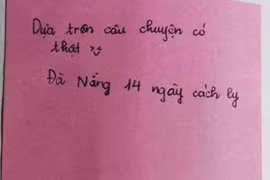 Dựa trên câu chuyện có
thật
Đà Nẵng 14 ngày cách ly